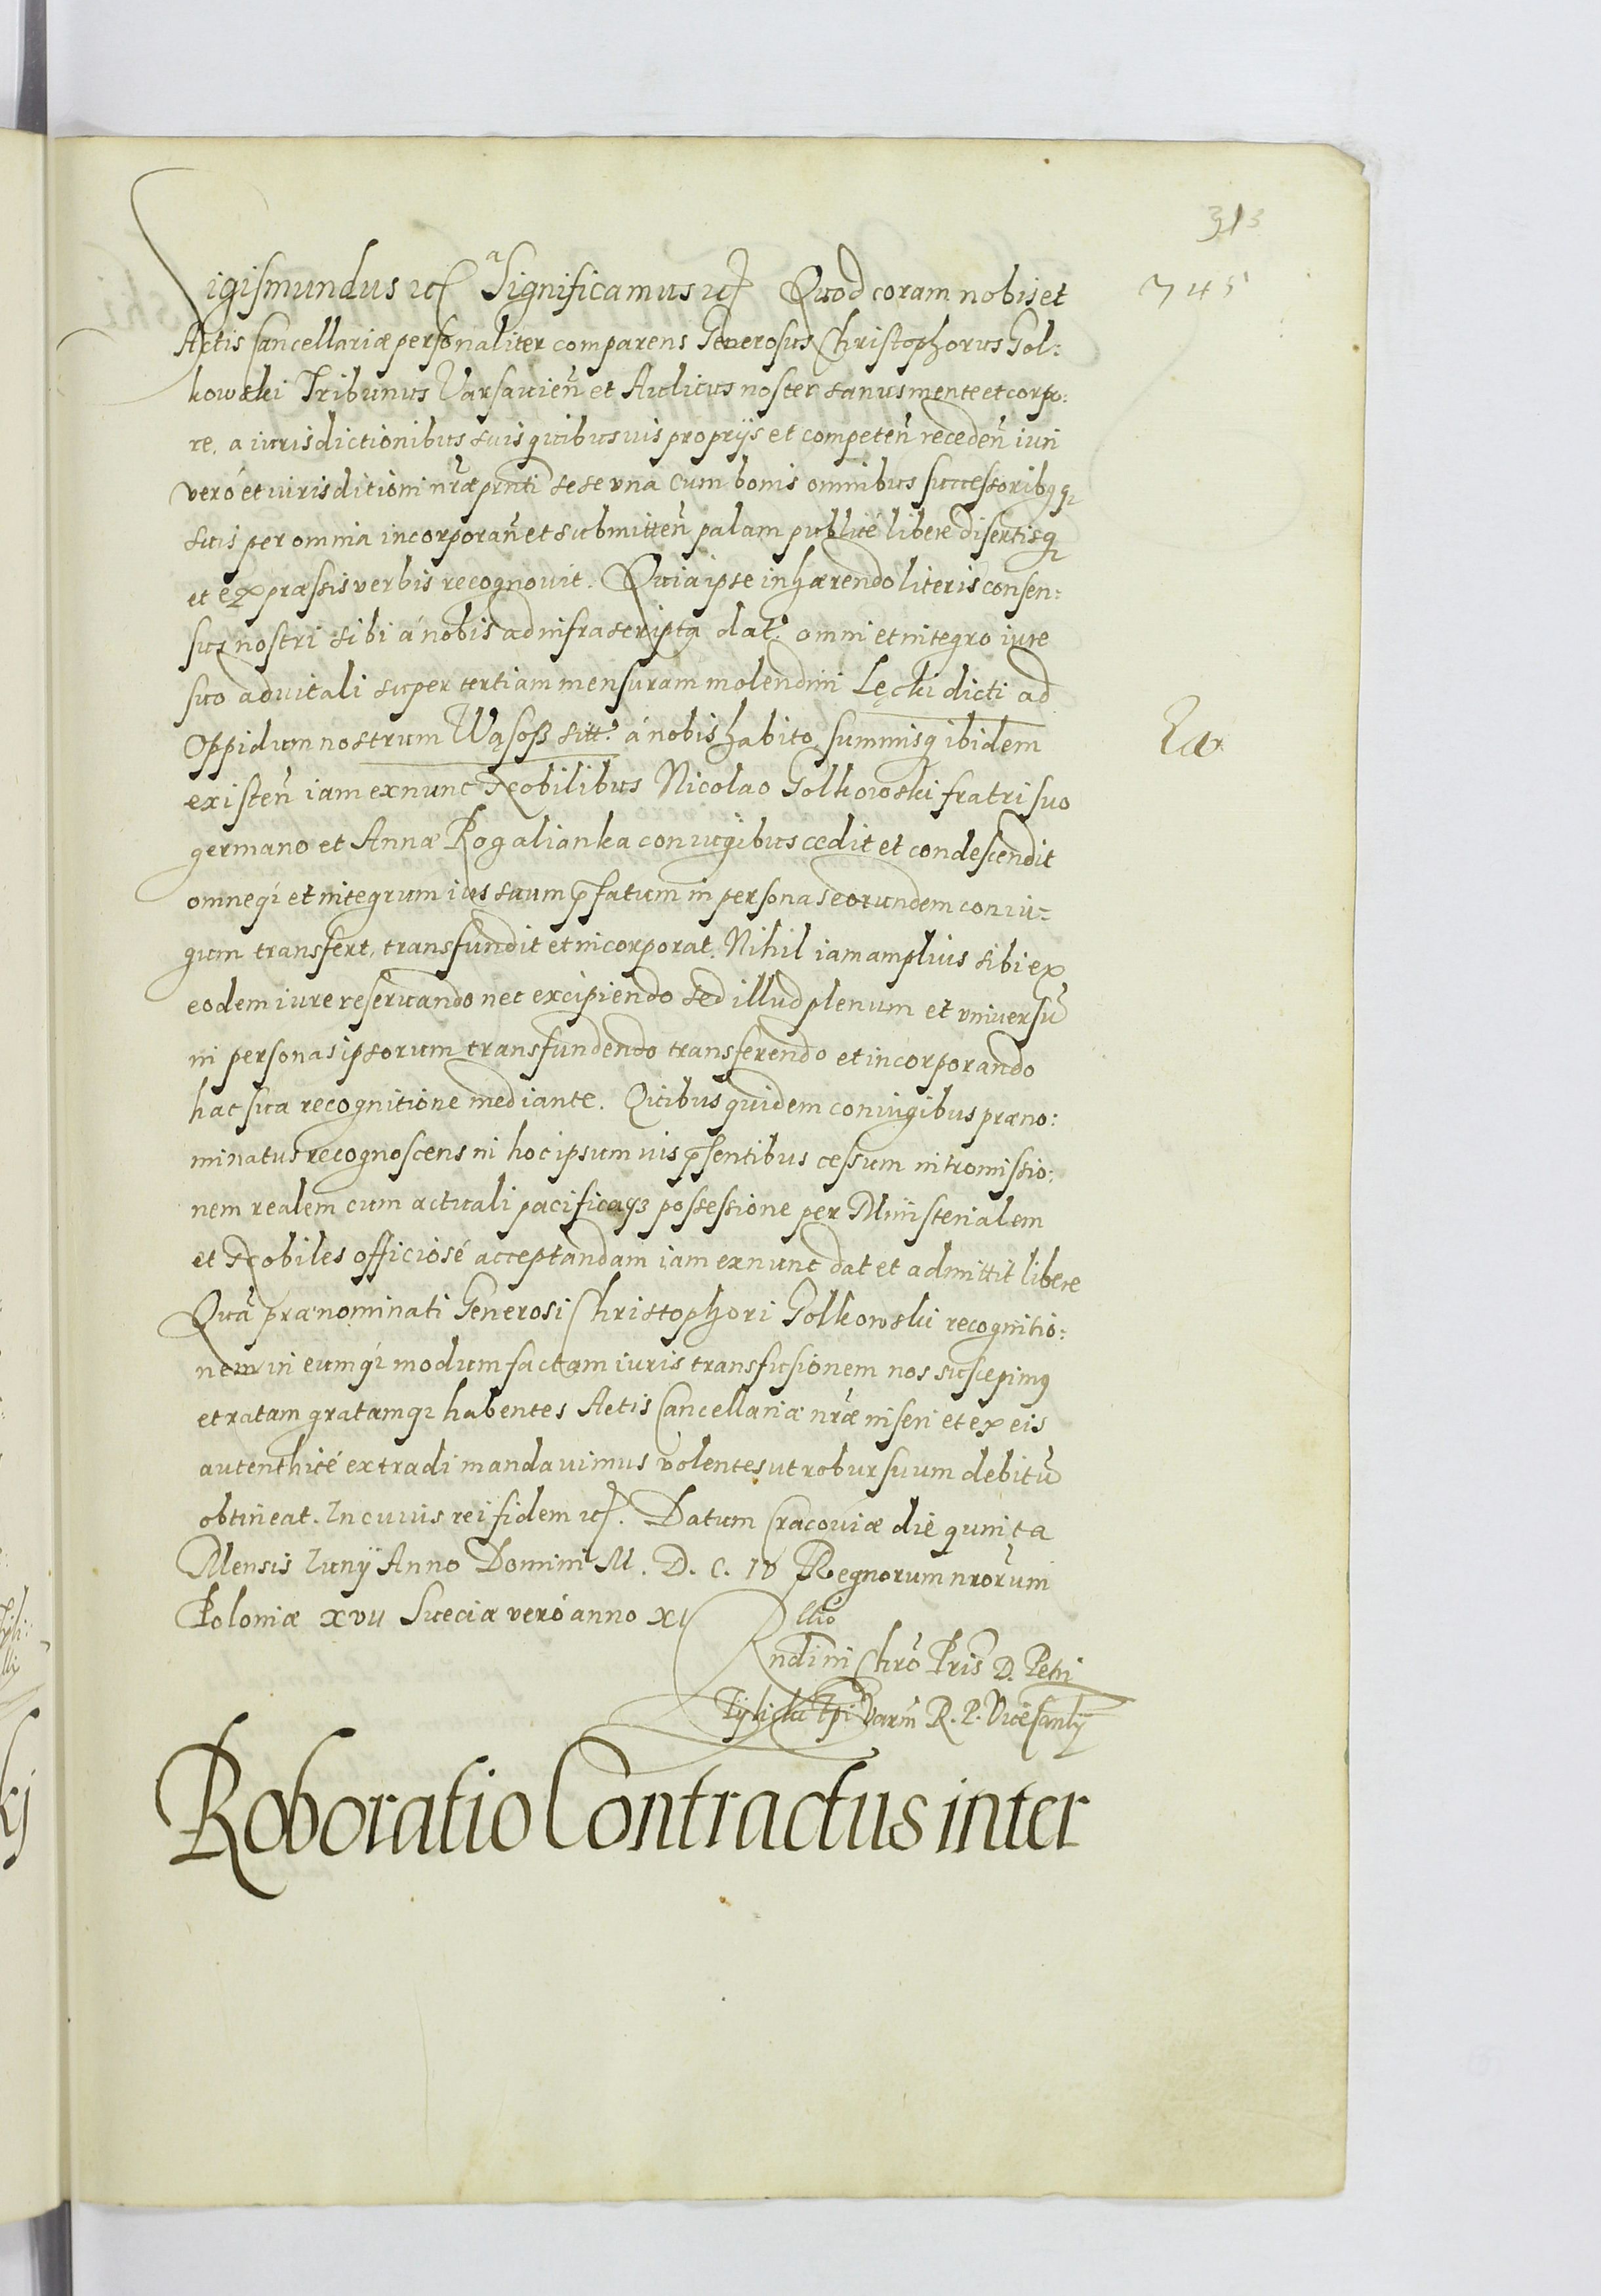 313
745
Sigismundus etc Significamus etc Quod coram nobis et
Actis Cancellariæ personaliter comparens Generosus Christophorus Gol:
kowski Tribunus Varsavień et Aulicus noster sanus mente et corpo:
re, a iurisdictionibus suis quibusuis proprijs et competeñ recedeñ iuri
veró et iurisditioni nr̃æ pñti sese vna cum bonis omnibus successoribusq̃
suis per omnia incorporañ et submitteñ palam publicé libere disertisq̃
et expræssis verbis recognouit. Quia ipse inhærendo literis consen:
sus nostri sibi á nobis ad infrascripta dat: omni et integro iure
suo aduitali super tertiam mensuram molendini Lęcki dicti ad
Oppidum nostrum Wąsoß sitt: á nobis habito, summisq̃ ibidem
existeñ iam exnunc Nobilibus Nicolao Golkowski fratri suo
germano et Annæ Rogalianka coniugibus cedit et condescendit
omneq; et integrum ius suum p̃fatum in personas eorundem coniu=
gum transfert, transfundit et incorporat. Nihil iam amplius sibi ex
eodem iure reseruando nec excipiendo sed illud plenum et vniversũ
in personas ipsorum transfundendo transferendo et incorporando
hac sua recognitione mediante. Quibus quidem coniugibus præno:
minatus recognoscens in hoc ipsum ius p̃sentibus cessum intromissio:
nem realem cum actuali pacificaq3 possessione per Ministerialem
et Nobiles officiosé acceptandam iam exnunc dat et admittit libere
Quã prænominati Generosi Christophori Golkowski recognitio:
nem in eumq; modum factam iuris transfusionem nos suscepimus
et ratam gratamq; habentes Actis Cancellariæ nr̃æ inseri et ex eis
autenthicé extradi mandauimus volentes ut robur suum debitũ
obtineat. In cuius rei fidem etc. Datum Cracoviæ die quinta
Mensis Iunij Anno Domini M. D. C. IV Regnorum nrõrum
Poloniæ XVII Sueciæ veró anno XI
Rllio
Rndi in Chrõ Pris D. Petri
Tylicki Epi Varm R. P. Vicecanlij
Roboratio Contractus inter